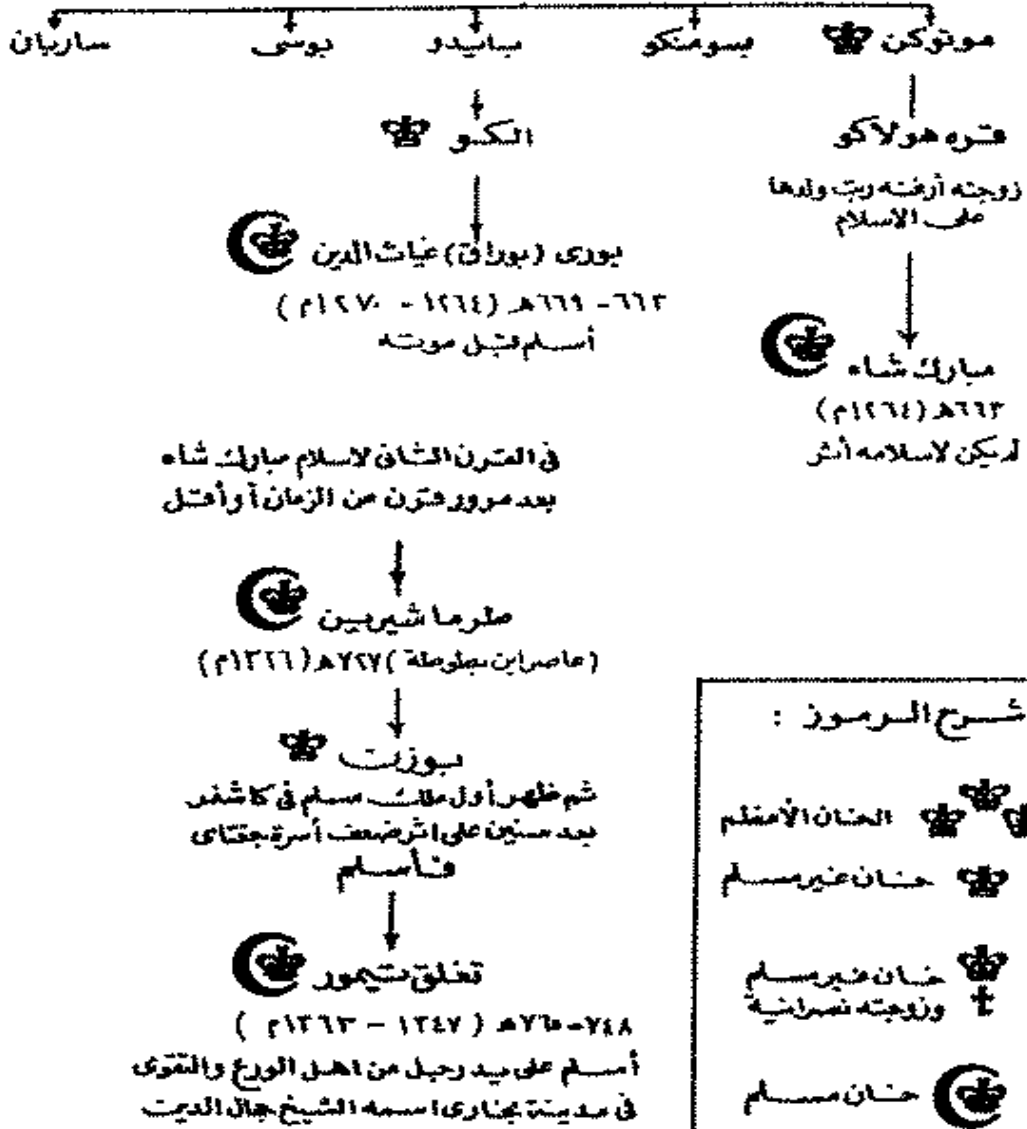 موتوكن
يسومنكو
بايدو
بوسى
ساربان
قره هولاكو
زوجته أرغنه ربت ولدها
على الاسلام
مبارك شاه
٦٦٣هـ (١٢٦٤م)
لم يكن لاسلامه أثر
الكو
بورى (بوراق) غياث الدين
٦٦٣ - ٦٦٩هـ (١٢٦٤ - ١٢٧٠م)
أسلم قبل موته
فى القرن الثانى لاسلام مبارك شاه
بعد مرور قرن من الزمان أو أقل
طرما شيرين
(عاصر ابن بطوطة) ٧٢٧هـ (١٣٢٦م)
بوزن
ثم ظهر أول ملك مسلم فى كاشغر
بعد سنين على اثر ضعف أسرة جغتاى
فأسلم
تغلق تيمور
٧٤٨ - ٧٦٥هـ (١٣٤٧ - ١٣٦٣م)
أسلم على يد رجل من اهل الورع والتقوى
فى مدينة بخارى اسمه الشيخ جمال الدين
شرح الرموز :
الخان الأعظم
خان غير مسلم
خان غير مسلم
وزوجته نصرانية
خان مسلم